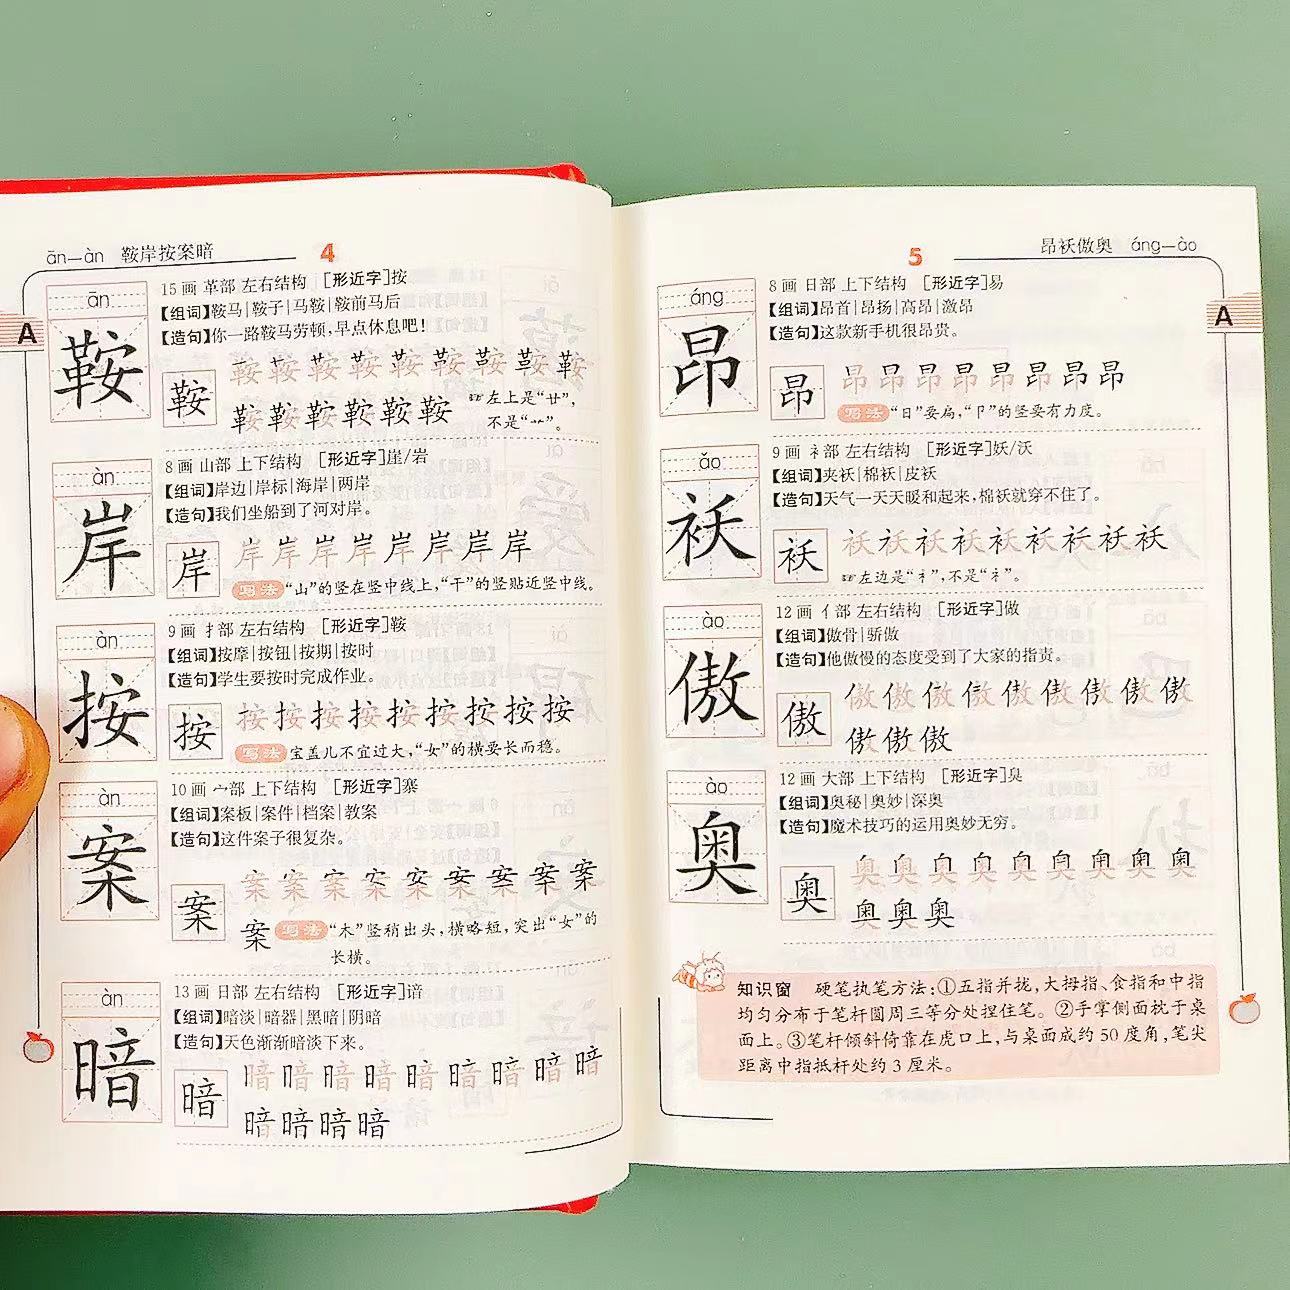 ān—àn 鞍岸按案暗 4
A
ān
鞍
15画 革部 左右结构 [形近字]按
【组词】鞍马|鞍子|马鞍|鞍前马后
【造句】你一路鞍马劳顿,早点休息吧!
鞍 鞍鞍鞍鞍鞍鞍鞍鞍鞍
鞍鞍鞍鞍鞍鞍 左上是“廿”,
不是“艹”。
àn
岸
8画 山部 上下结构 [形近字]崖/岩
【组词】岸边|岸标|海岸|两岸
【造句】我们坐船到了河对岸。
岸 岸岸岸岸岸岸岸岸
写法 “山”的竖在竖中线上,“干”的竖贴近竖中线。
àn
按
9画 扌部 左右结构 [形近字]鞍
【组词】按摩|按钮|按期|按时
【造句】学生要按时完成作业。
按 按按按按按按按按按
写法 宝盖儿不宜过大,“女”的横要长而稳。
àn
案
10画 宀部 上下结构 [形近字]寨
【组词】案板|案件|档案|教案
【造句】这件案子很复杂。
案 案案案案案案案案案
案 写法 “木”竖稍出头,横略短,突出“女”的
长横。
àn
暗
13画 日部 左右结构 [形近字]谙
【组词】暗淡|暗器|黑暗|阴暗
【造句】天色渐渐暗淡下来。
暗 暗暗暗暗暗暗暗暗暗
暗暗暗暗
5 昂袄傲奥 áng—ào
A
áng
昂
8画 日部 上下结构 [形近字]易
【组词】昂首|昂扬|高昂|激昂
【造句】这款新手机很昂贵。
昂 昂昂昂昂昂昂昂昂
写法 “日”要扁,“卩”的竖要有力度。
ǎo
袄
9画 衤部 左右结构 [形近字]妖/沃
【组词】夹袄|棉袄|皮袄
【造句】天气一天天暖和起来,棉袄就穿不住了。
袄 袄袄袄袄袄袄袄袄袄
左边是“衤”,不是“礻”。
ào
傲
12画 亻部 左右结构 [形近字]做
【组词】傲骨|骄傲
【造句】他傲慢的态度受到了大家的指责。
傲 傲傲傲傲傲傲傲傲傲
傲傲傲
ào
奥
12画 大部 上下结构 [形近字]臭
【组词】奥秘|奥妙|深奥
【造句】魔术技巧的运用奥妙无穷。
奥 奥奥奥奥奥奥奥奥奥
奥奥奥
知识窗 硬笔执笔方法:①五指并拢,大拇指、食指和中指
均匀分布于笔杆圆周三等分处捏住笔。②手掌侧面枕于桌
面上。③笔杆倾斜倚靠在虎口上,与桌面成约50度角,笔尖
距离中指抵杆处约3厘米。